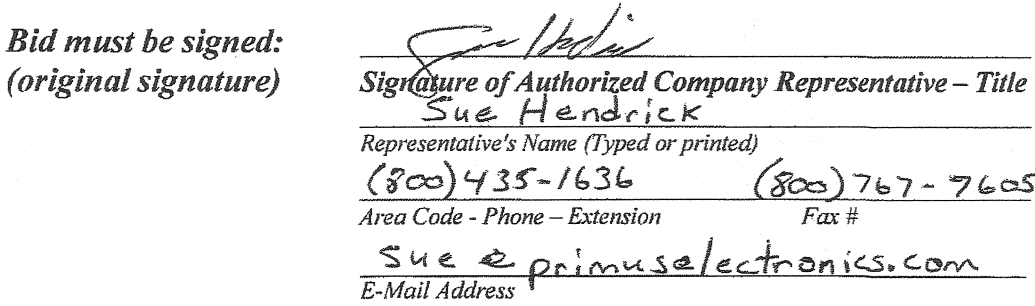 Bid must be signed:
(original signature)
Sue Hendrick
Signature of Authorized Company Representative – Title
Sue Hendrick
Representative's Name (Typed or printed)
(800) 435-1636 (800) 767-7605
Area Code - Phone – Extension Fax #
Sue @ primuselectronics.com
E-Mail Address